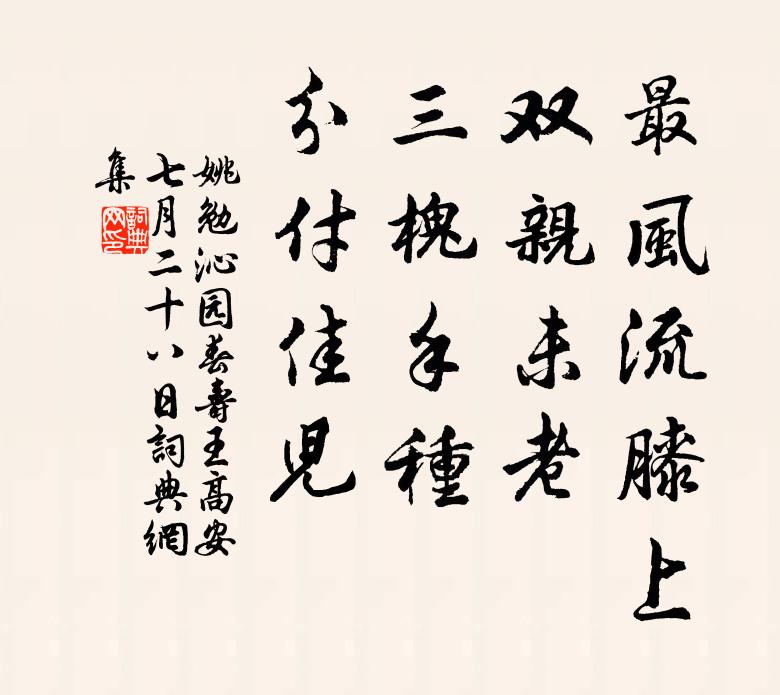 最風流膝上
双親未老
三槐手種
分付佳児
姚勉沁园春壽王高安
七月二十八日詞典網
集
詞典網印